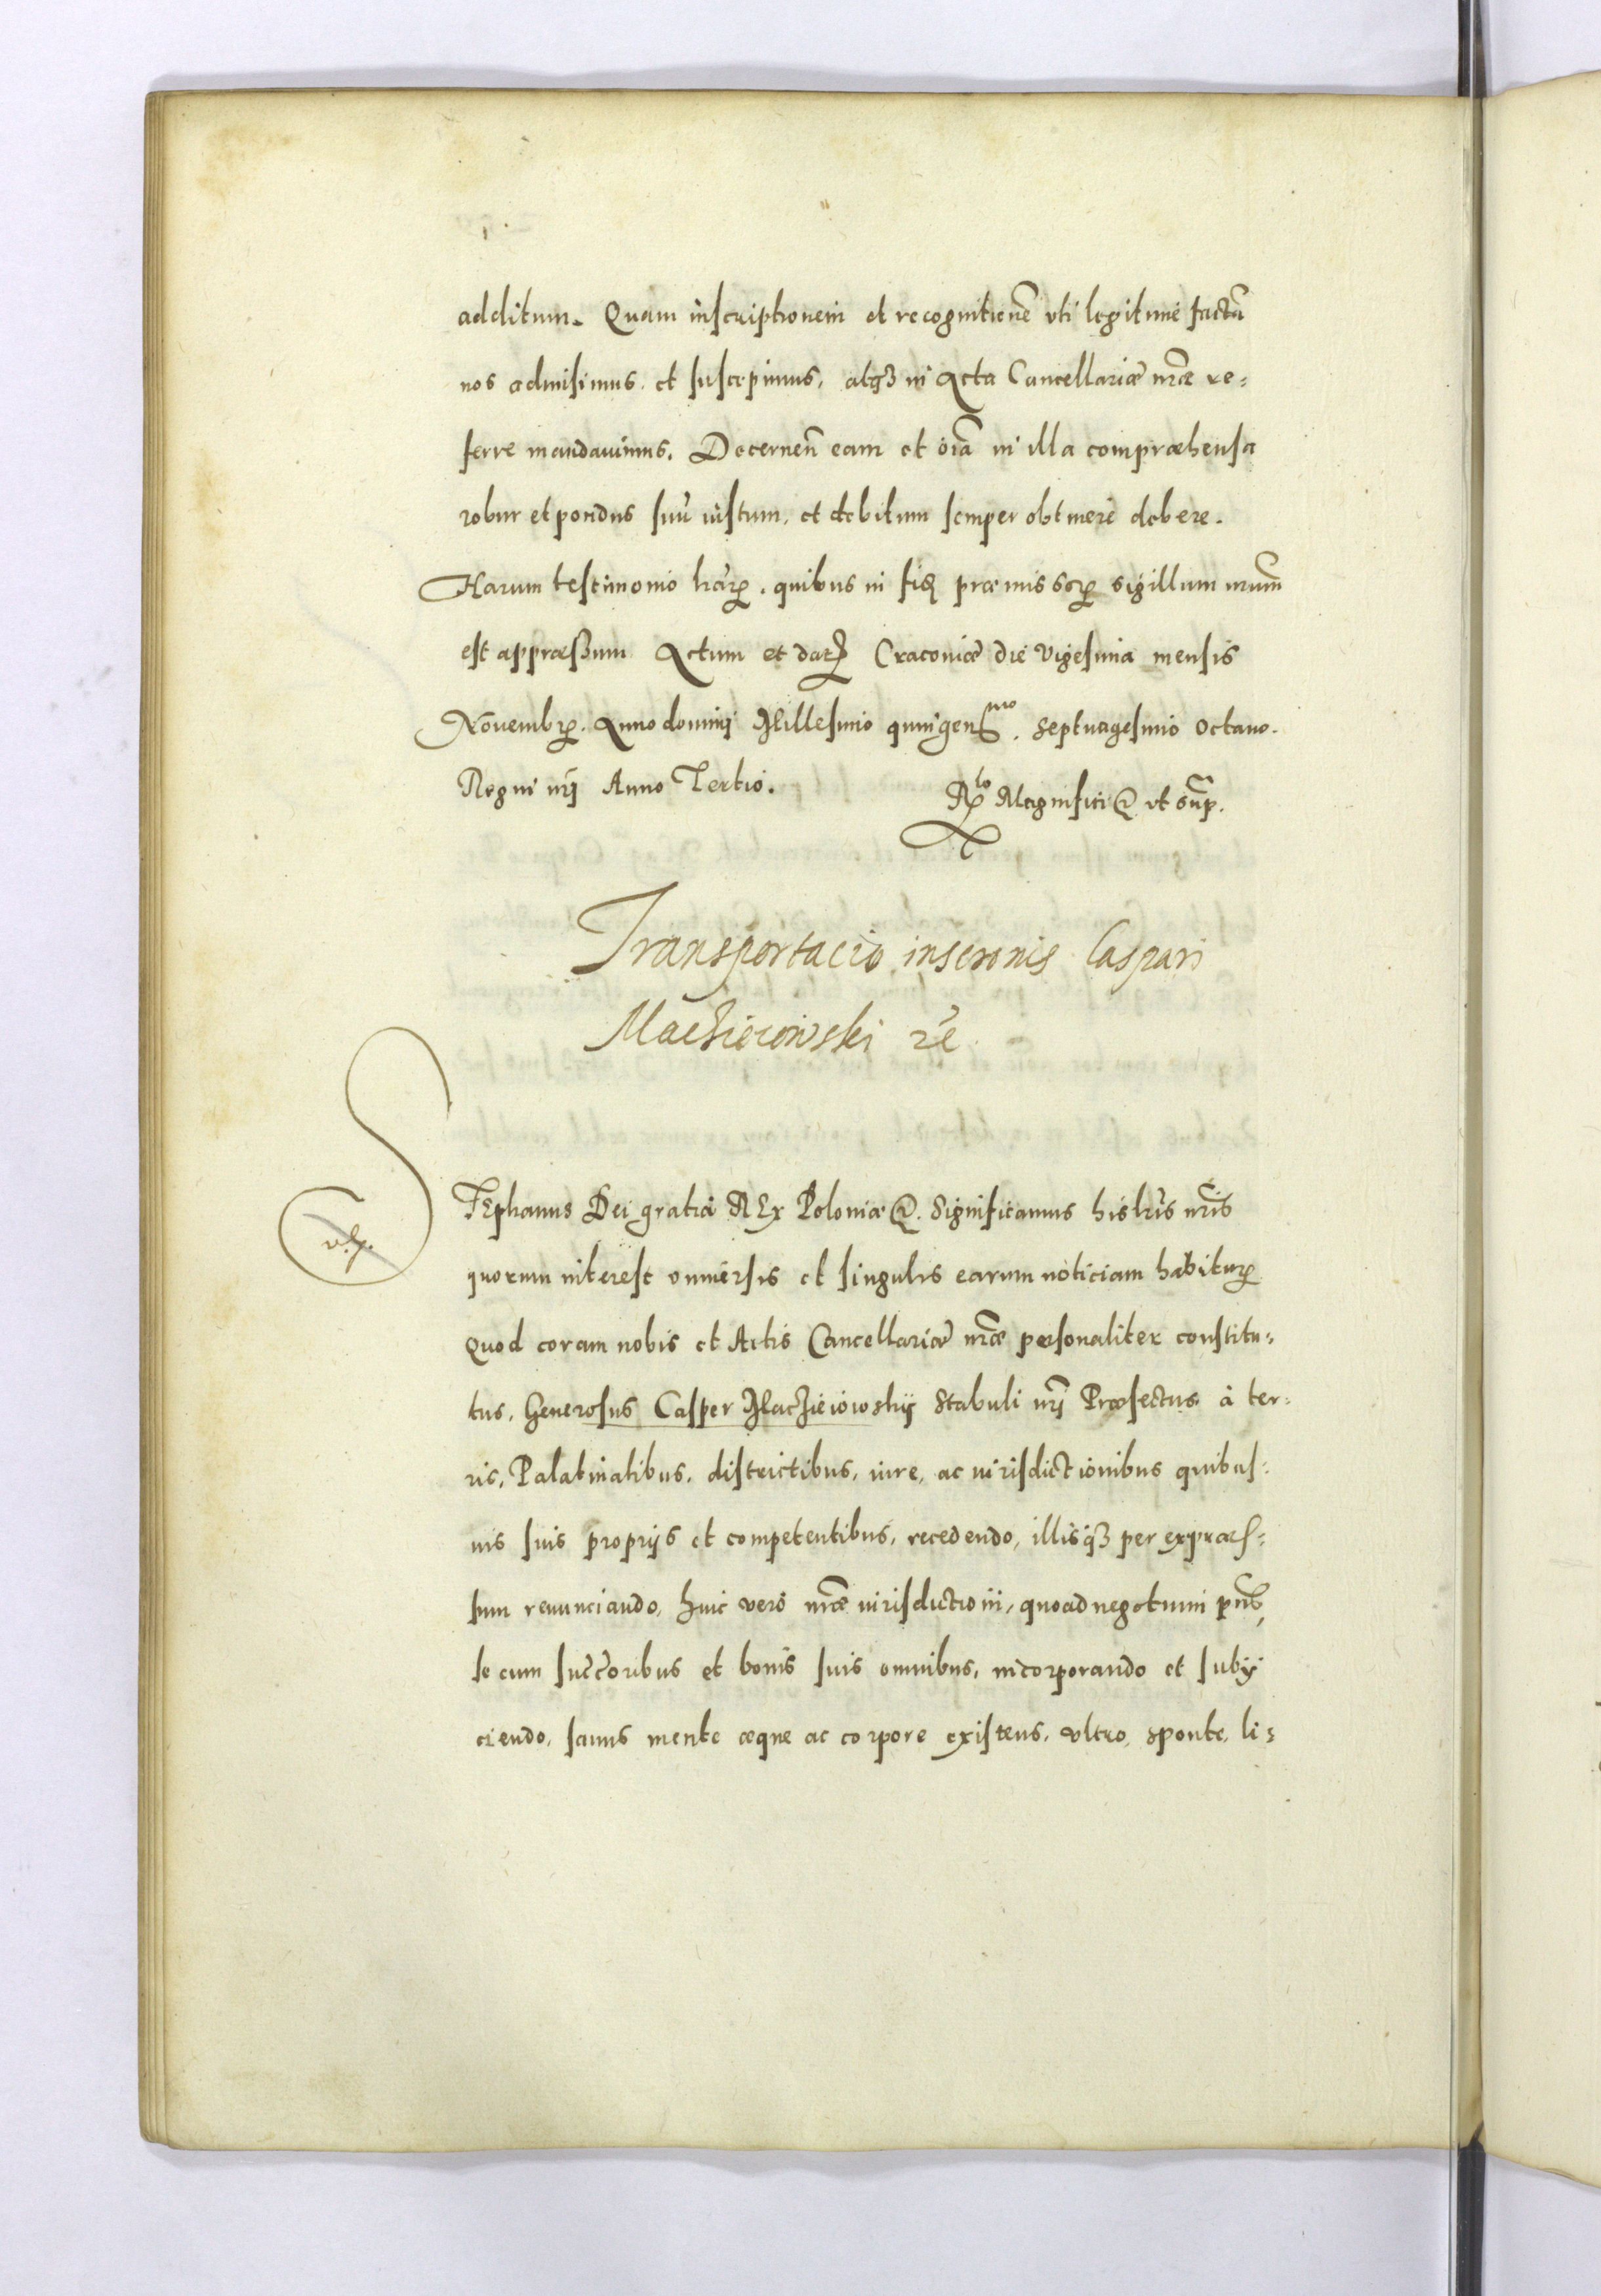 additum. Quam inscriptionem et recognitionē uti legitime factā
nos admisimus et suscepimus, atq3 in Acta Cancellariæ nræ re-
ferre mandavimus. Decernen̄ eam et oīa in illa compræhensa
robur et pondus suū iustum, et debitum semper obtinere debere.
Harum testimonio lrarꝝ. quibus in fidē præmissorꝝ sigillum nrum
est appræssum Actum et dat Cracoviæ die vigesima mensis
Novembrꝭ. Anno domini Millesimo quingenᵐᵒ. Septuagesimo octavo.
Regni nri Anno Tertio. Rlo Magnifici &. ut sup.
Transportacio inscronis Caspari
Macżieiowski ꝛc
STEphanus Dei gratia REx Poloniæ &. Significamus his lris nris
quorum interest universis et singulis earum noticiam habiturꝭ
Quod coram nobis et Actis Cancellariæ nræ personaliter constitu-
tus, Generosus Casper Macżieiowskij Stabuli nri Præfectus à ter-
ris, Palatinatibus, districtibus, iure, ac iurisdictionibus quibus-
vis suis proprijs et competentibus, recedendo, illisq3 per expræs-
sum renunciando, huic vero nræ iurisdictioni, quoad negotium pñs
se cum succōribus et bonis suis omnibus, incorporando et subij
ciendo, sanus mente æque ac corpore existens, ultro, sponte, li-